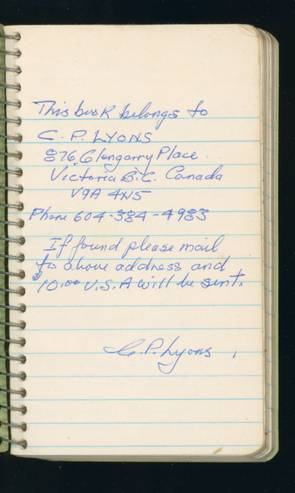 This book belongs to
C. P. LYONS
876, Glengarry Place
Victoria B.C. Canada
V9A 4N5
Phone 604-384-4983
If found please mail
to above address and
10.00 U.S.A will be sent.
C.P. Lyons